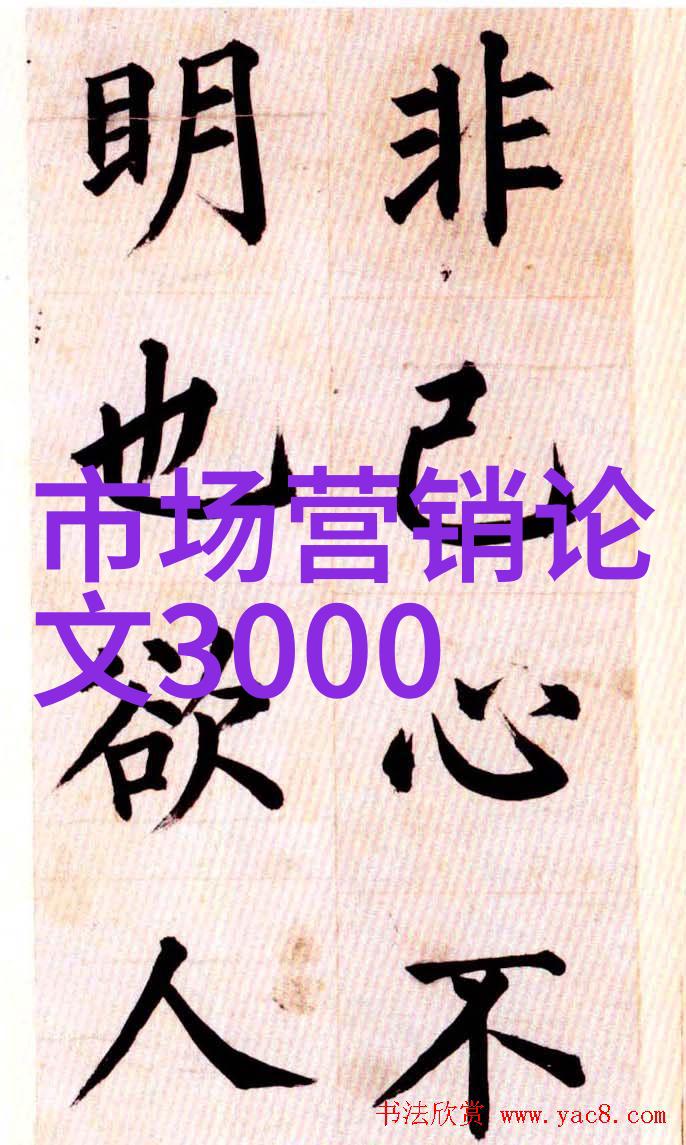 非己心不
明也欲人
市场营销论
文3000
书法欣赏 www.yac8.com